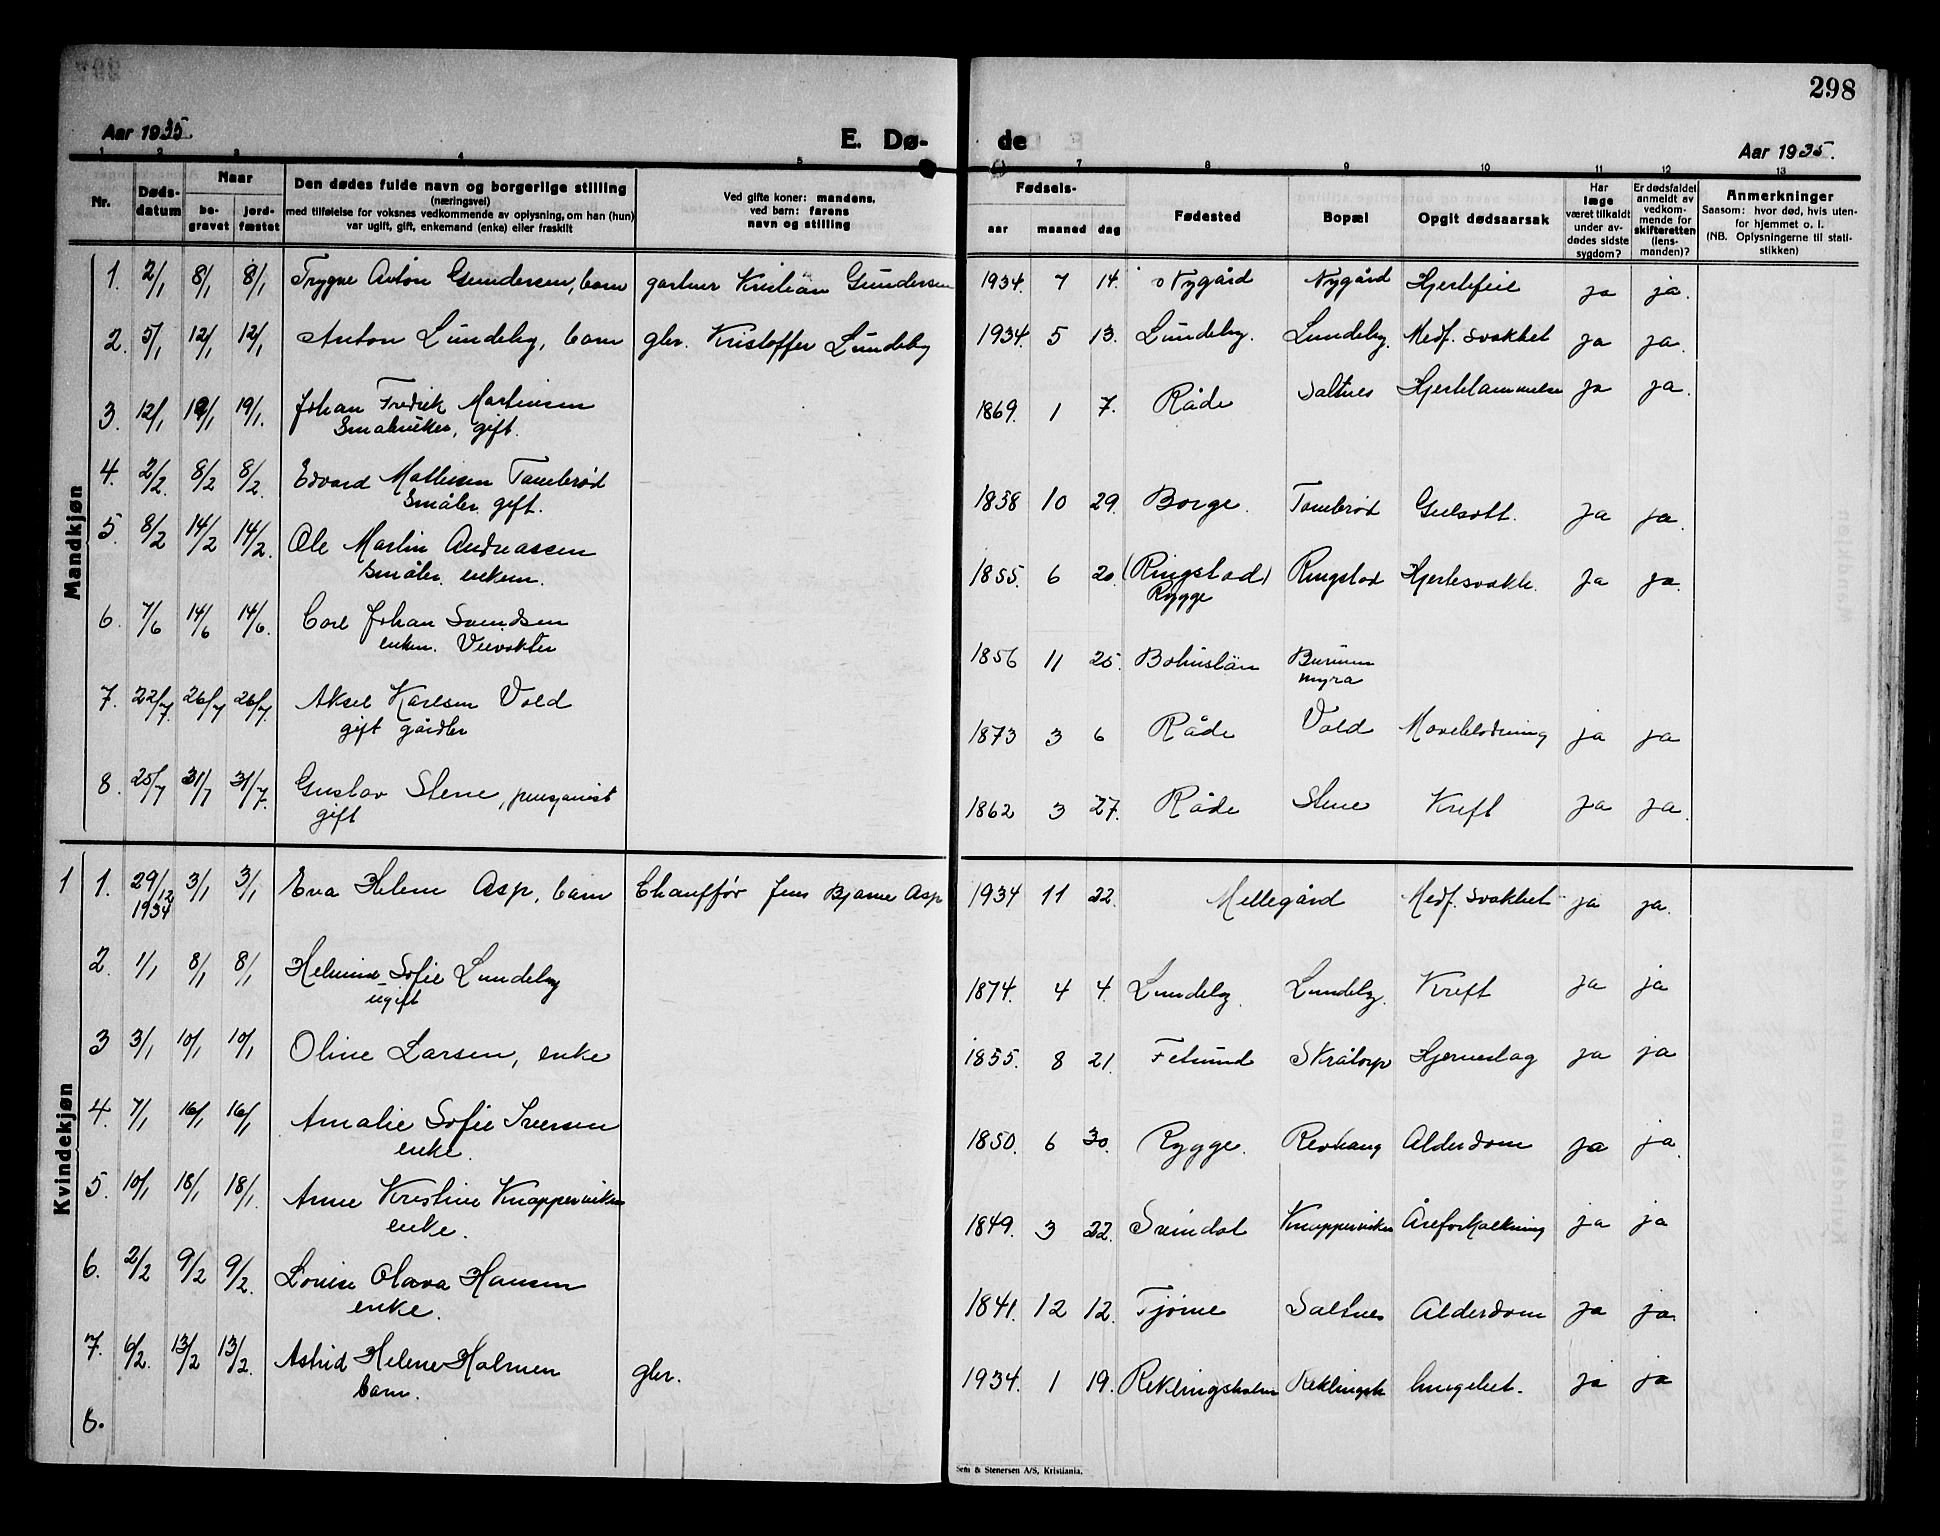 298
Aar 1935.
E. Dø-
de
Aar 1935.
1 2 3 4 5 7 8 9 10 11 12 13
Nr.
Døds-
datum
Naar
be-
gravet
jord-
fæstet
Den dødes fulde navn og borgerlige stilling
(næringsvei)
med tilføielse for voksnes vedkommende av oplysning, om han (hun)
var ugift, gift, enkemand (enke) eller fraskilt
Ved gifte koner: mandens,
ved barn: farens
navn og stilling
Fødsels-
aar maaned dag
Fødested
Bopæl
Opgit dødsaarsak
Har
læge
været tilkaldt
under av-
dødes sidste
sygdom?
Er dødsfaldet
anmeldt av
vedkom-
mende for
skifteretten
(lens-
manden)?
Anmerkninger
Saasom: hvor død, hvis uten-
for hjemmet o. l.
(NB. Oplysningerne til stati-
stikken)
Mandkjøn
1. 2/1 8/1 8/1 Trygve Anton Gundersen, barn gartner Kristian Gundersen 1934. 7 14. Nygård Nygård Hjertefeil ja ja.
2. 5/1 12/1 12/1 Anton Lundeby, barn gbr. Kristoffer Lundeby 1934. 5 13. Lundeby. Lundeby. Medf. svakhet ja ja.
3. 12/1 19/1 19/1. Johan Fredrik Martinsen 1869. 1 7. Råde Saltnes Hjertelammelse ja ja.
Småbruker, gift.
4. 2/2. 8/2 8/2. Edvard Mathisen Tombrød 1838 10 29. Borge. Tombrød Gulsott. ja ja.
Småbr. gift.
5. 8/2 14/2 14/2. Ole Martin Andreassen 1855. 6 20. (Ringstad) Ringstad Hjertesvakh. ja ja.
Småbr. enkem. Rygge
6. 7/6 14/6 14/6. Carl Johan Svendsen 1856 11 25. Bohuslän
enkem. Veivokter myra
7. 22/7. 26/7 26/7 Aksel Karlsen Vold 1873 3 6 Råde Vold Maveblødning ja ja
gift gårdbr
8. 25/7 31/7 31/7. Gustav Stene, pensjonist 1862 3 27. Råde Stene Kreft ja ja.
gift
Kvindekjøn
1 1. 29/12 3/1 3/1 Eva Helene Asp, barn Chauffør Jens Bjarne Asp 1934 11 22. Mellegård Medf. svakhet ja ja.
1934
2. 1/1 8/1 8/1 Helmine Sofie Lundeby 1874. 4 4. Lundeby. Lundeby. Kreft ja ja
ugift
3 3/1 10/1 10/1 Oline Larsen, enke 1855. 8 21. Fetsund Skråtorp Hjerneslag ja ja
4. 7/1 16/1 16/1 Amalie Sofie Iversen 1850. 6 30. Rygge. Revhaug Alderdom ja ja.
enke.
5. 10/1 18/1 18/1. Anne Kristine Knapperviken 1849. 3 22. Svindal Knapperviken Åreforkalkning ja ja
enke.
6. 2/2 9/2 9/2. Lovise Olava Hansen 1841. 12 12. Tjøme Saltnes Alderdom ja ja.
enke.
7. 6/2. 13/2 13/2. Astrid Helene Holmen gbr. 1934. 1 19. Reklingsholm Reklingsh. lungebet. ja ja
barn.
8.
Sem & Stenersen A/S, Kristiania.